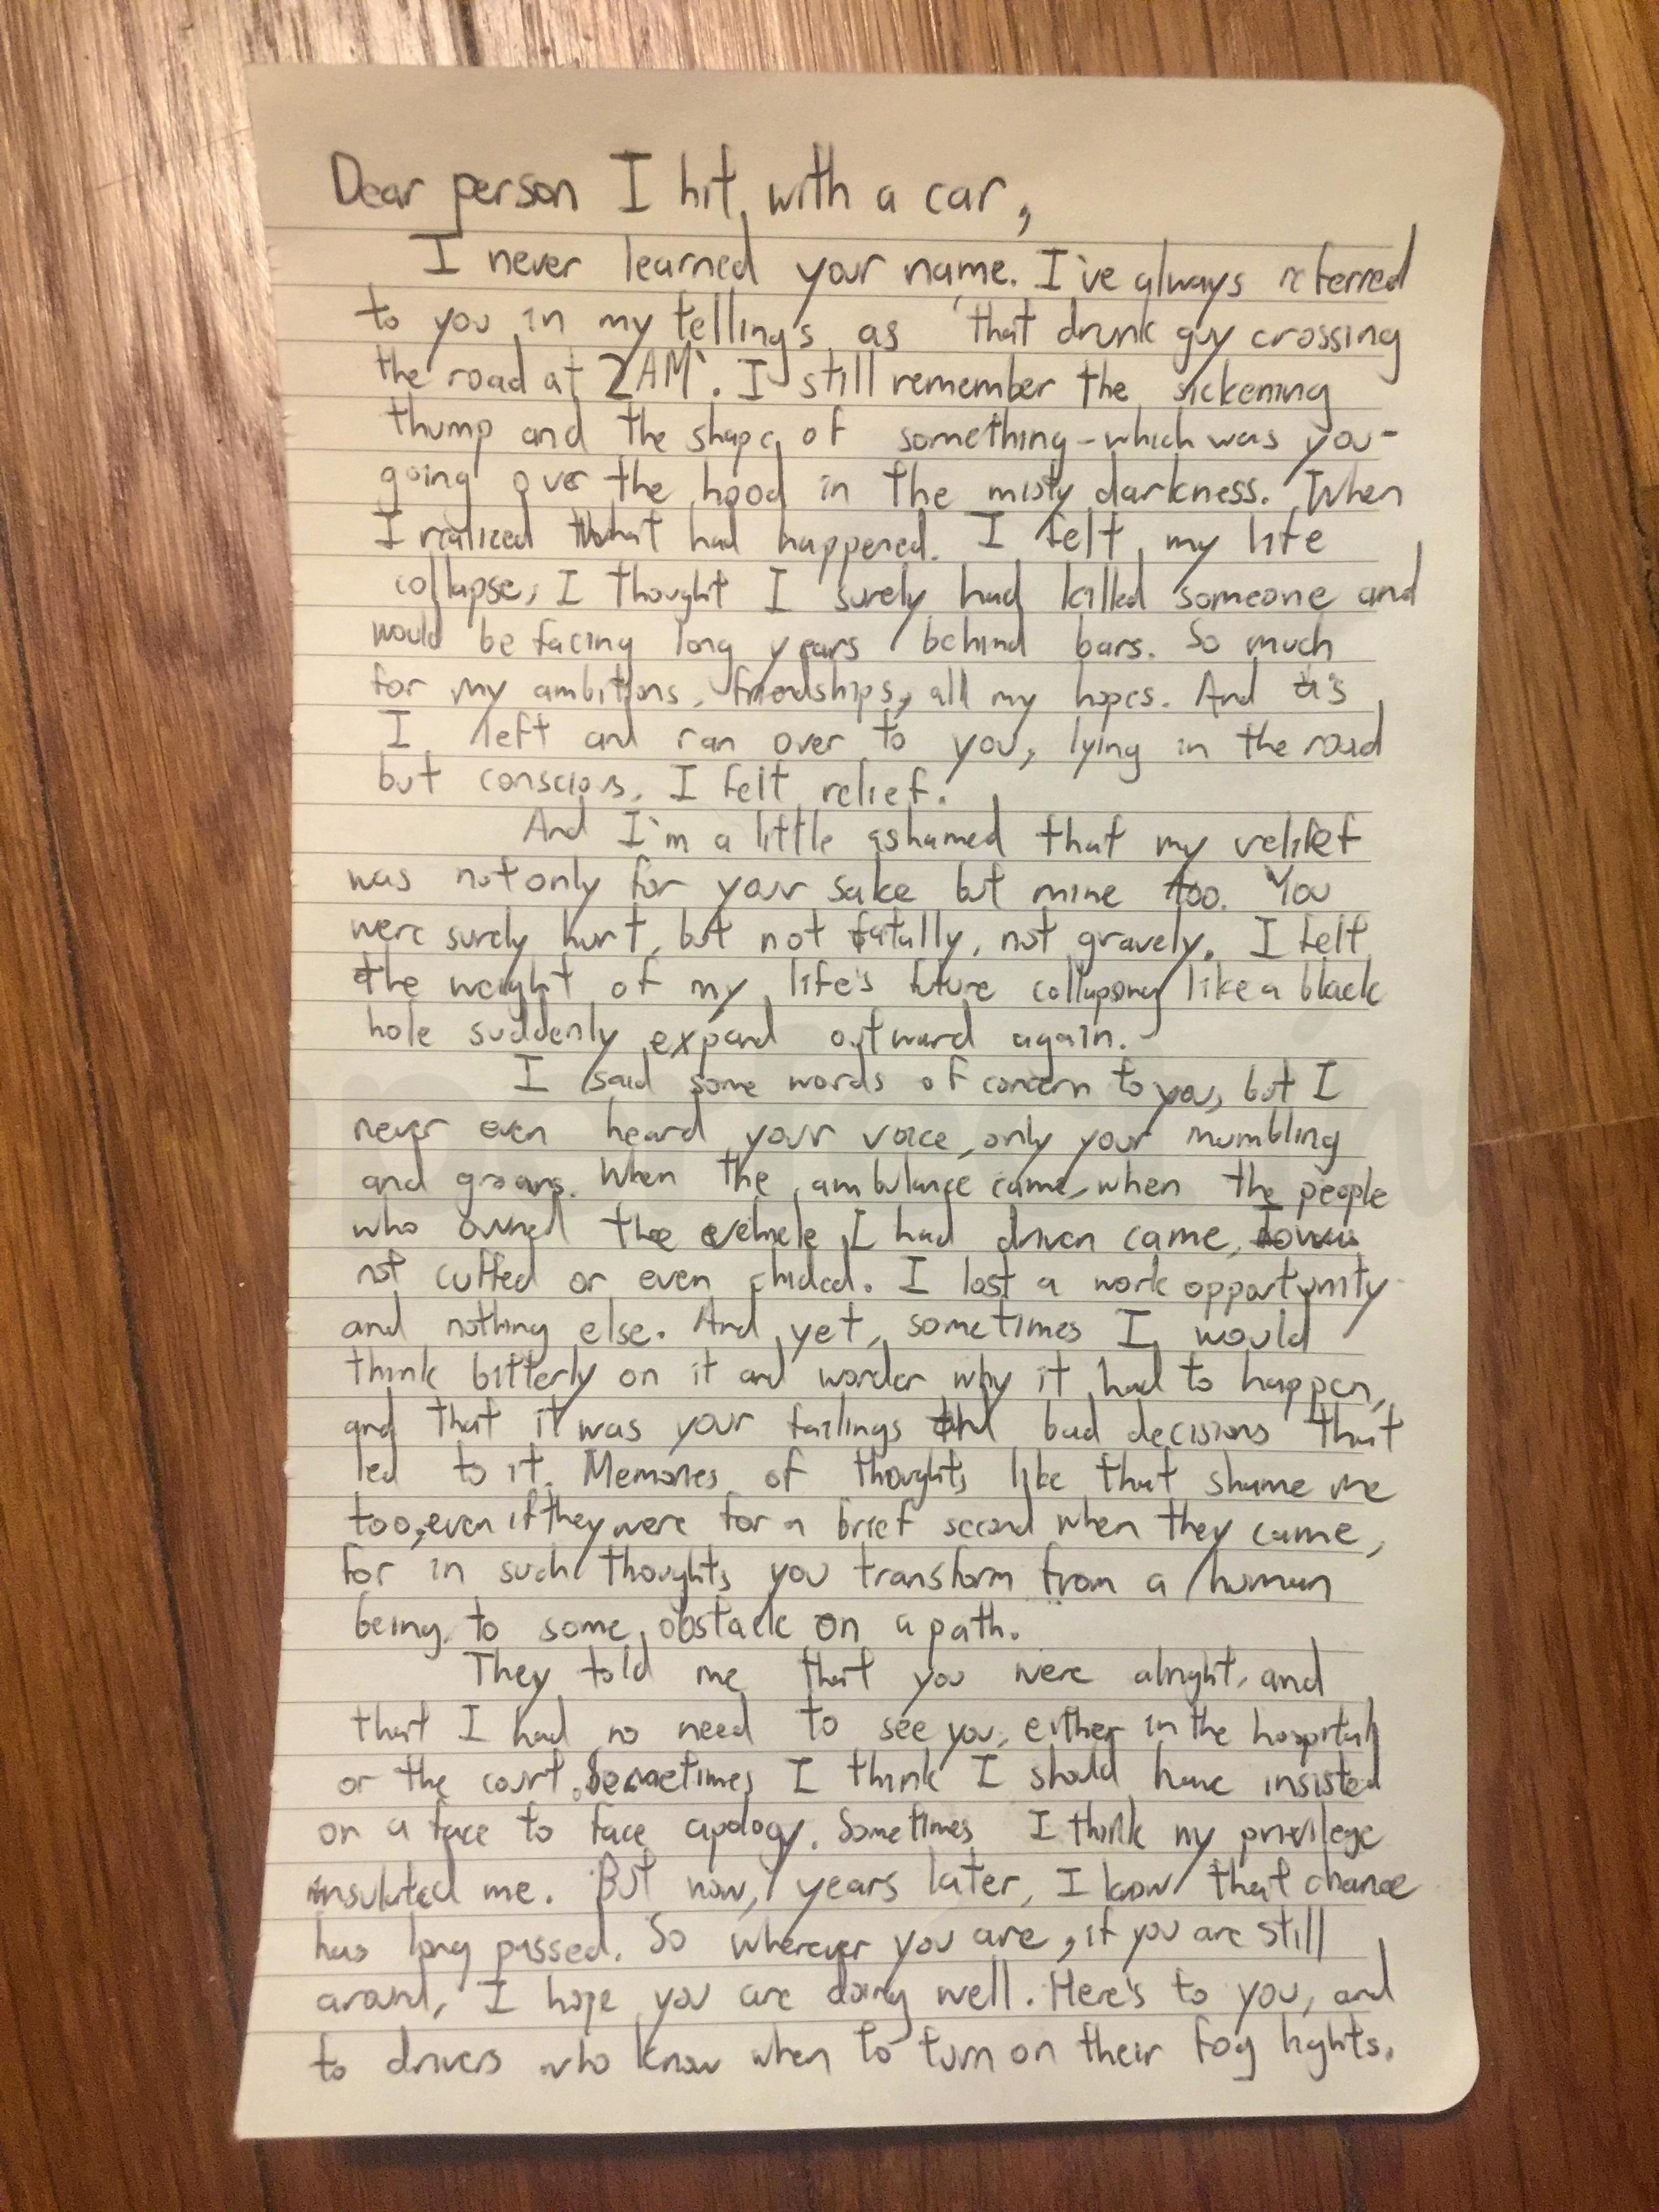 Dear person I hit with a car,
I never learned your name. I've always referred
to you in my tellings as 'that drunk guy crossing
the road at 2AM'. I still remember the sickening
thump and the shape of something - which was you -
going over the hood in the misty darkness. When
I realized what had happened. I felt my life
collapse, I thought I surely had killed someone and
would be facing long years behind bars. So much
for my ambitions, friendships, all my hopes. And as
I left and ran over to you, lying in the road
but conscious, I felt relief.
And I'm a little ashamed that my relief
was not only for your sake but mine too. You
were surely hurt, but not fatally, not gravely. I felt
the weight of my life's future collapsing like a black
hole suddenly expand outward again.
I said some words of concern to you, but I
never even heard your voice, only your mumbling
and groans. When the ambulance came, when the people
who owned the vehicle I had driven came, I was
not cuffed or even chided. I lost a work opportunity
and nothing else. And yet, sometimes I would
think bitterly on it and wonder why it had to happen,
and that it was your failings and bad decisions that
led to it. Memories of thoughts like that shame me
too, even if they were for a brief second when they came,
for in such thoughts you transform from a human
being to some obstacle on a path.
They told me that you were alright, and
that I had no need to see you, either in the hospital
or the court. Sometimes I think I should have insisted
on a face to face apology. Sometimes I think my privilege
insulated me. But now, years later, I know that chance
has long passed. So wherever you are, if you are still
around, I hope you are doing well. Here's to you, and
to drivers who know when to turn on their fog lights.